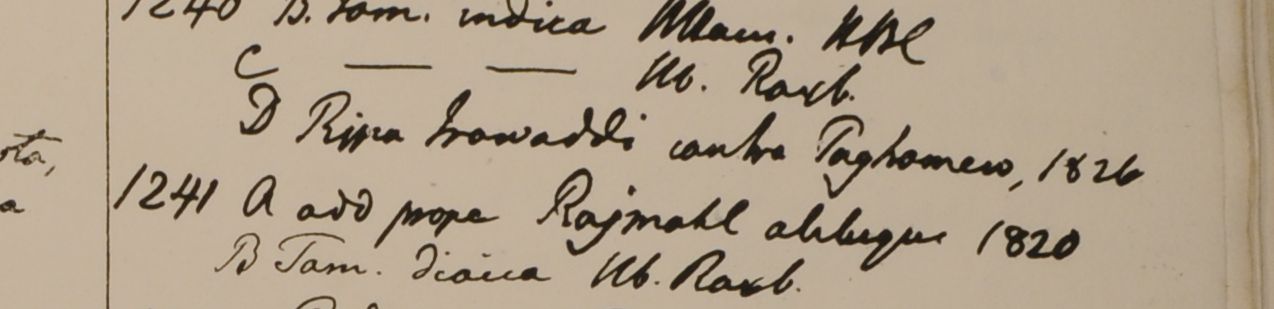 1240 B. Tam. indica Hb. Ham. HBC
C — — Hb. Roxb.
D Ripa Irawaddi contra Paghamew, 1826
1241 A add prope Rajmahl aliisque 1820
B Tam. dioica Hb. Roxb.
ota,
a